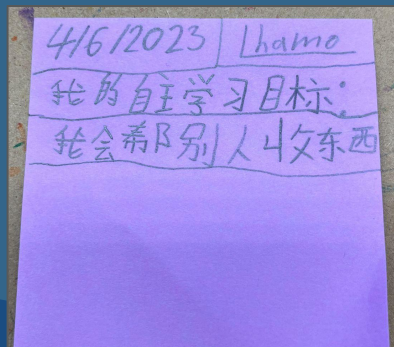 4/6/2023 Lhamo
我的自主学习目标：
我会帮别人收东西